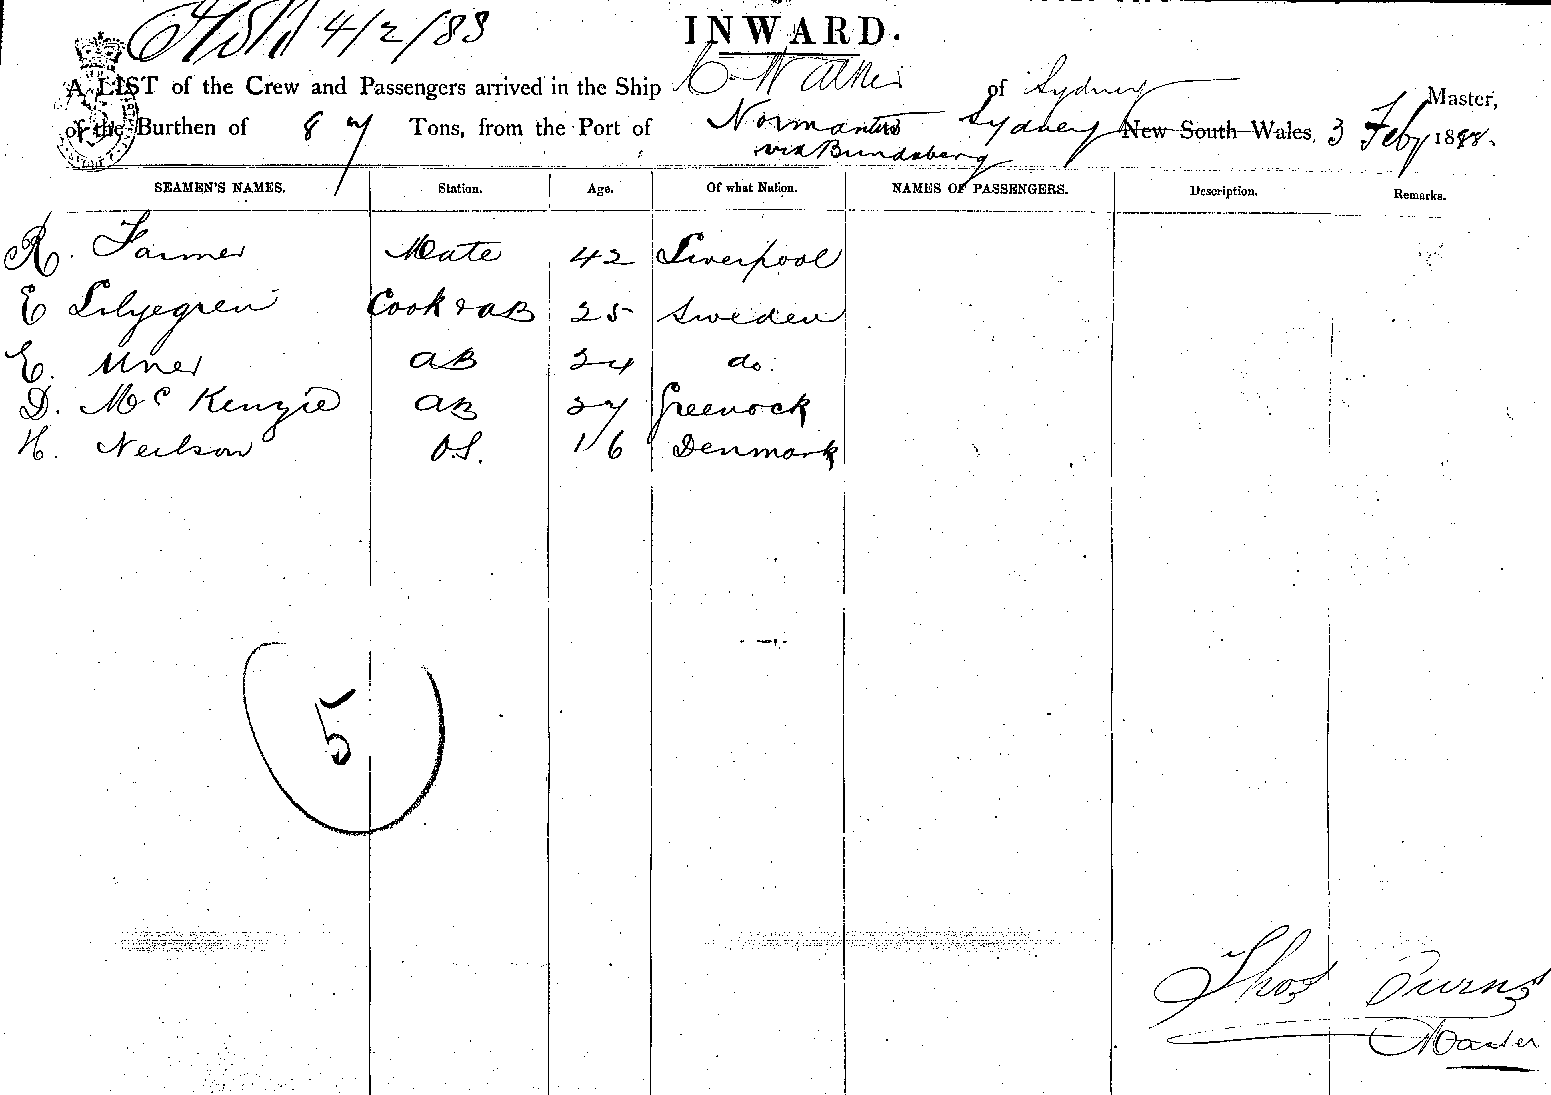 4/2/88
INWARD.
A LIST of the Crew and Passengers arrived in the Ship C Walker of Sydney Master,
of the Burthen of 87 Tons, from the Port of Normanton Sydney New South Wales, 3 Feby 1888.
via Bundaberg
SEAMEN'S NAMES. Station. Age. Of what Nation. NAMES OF PASSENGERS. Description. Remarks.
R. Farmer Mate 42 Liverpool
E Lilyegren Cook & AB 25 Sweden
E. AB 24 do.
D. McKenzie AB 27 Greenock
H. Neilson O.S. 16 Denmark
5
Thos Burns
Master